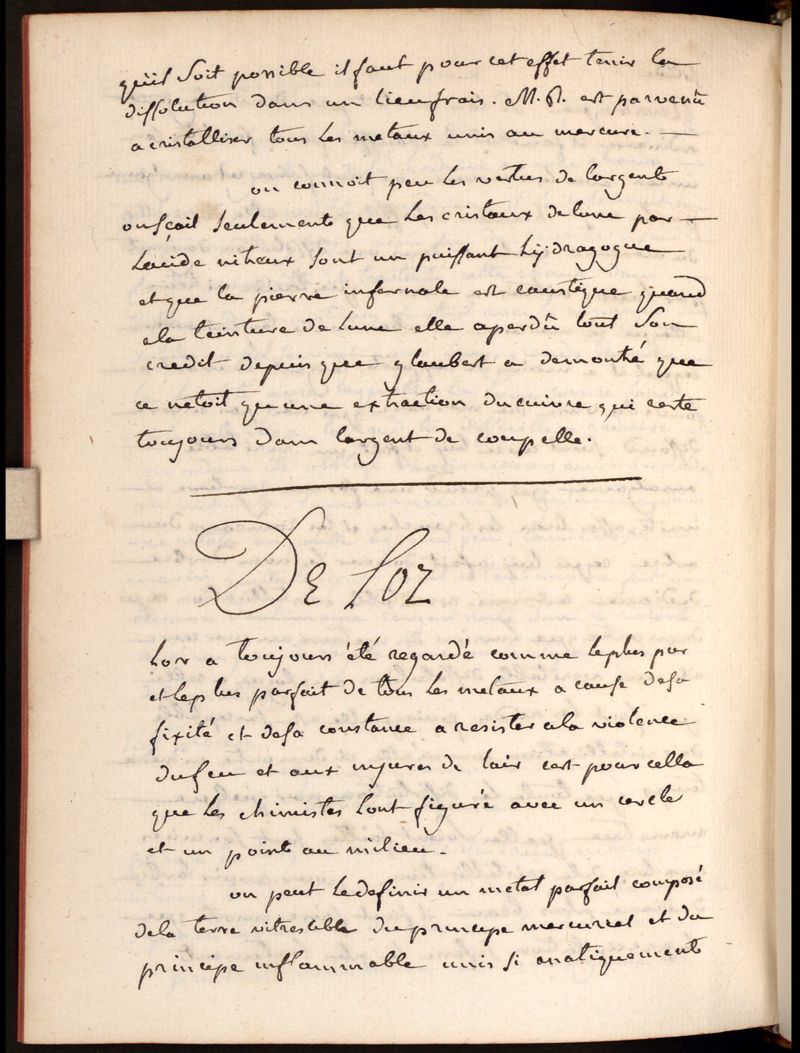 qu'il soit possible il faut pour cet effet tenir la
dissolution dans un lieu frais. M. R. est parvenû
a cristalliser tous les metaux unis au mercure. —
on connoit peu les vertus de largent
on sçait seulement que les cristaux de lune par —
lacide nitreux sont un puissant hydragogue
et que la pierre infernale est caustique quand
a la teinture de lune elle a perdû tout son
credit depuis que glaubert a demontré que
ce netoit qu une extraction du cuivre qui reste
toujours dans largent de coupelle.
De Lor
Lor a toujours été regardé comme le plus pur
et le plus parfait de tous les metaux a cause de sa
fixité et de sa constance a resister a la violence
du feu et aux injures de lair cest pour cella
que les chimistes lont figuré avec un cercle
et un point au milieu.
on peut le definir un metal parfait composé
de la terre vitrescible du principe mercuriel et du
principe inflammable unis si